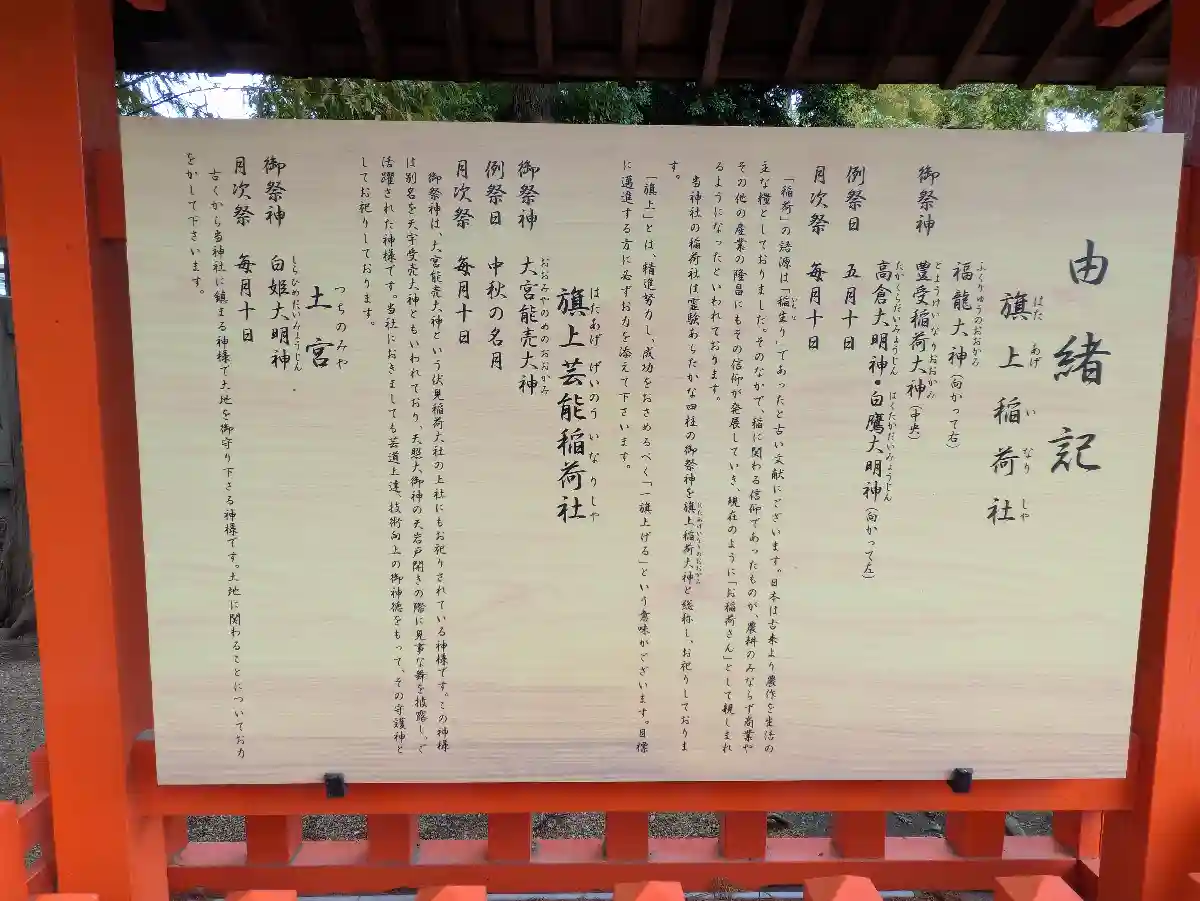 由緒記
旗上稲荷社
はた あげ い なり しや
御祭神
福龍大神(向かって右)
ふくりゅうのおおかみ
豊受稲荷大神(中央)
とようけいなりおおかみ
高倉大明神・白鷹大明神(向かって左)
たかくらだいみょうじん はくたかだいみょうじん
例祭日 五月十日
月次祭 毎月十日
「稲荷」の語源は「稲生り」であったと古い文献にございます。日本は古来より農作を生活の
主な糧としておりました。そのなかで、稲に関わる信仰であったものが、農耕のみならず商業や
その他の産業の隆昌にもその信仰が発展していき、現在のように「お稲荷さん」として親しまれ
るようになったといわれております。
当神社の稲荷社は霊験あらたかな四柱の御祭神を旗上稲荷大神と総称し、お祀りしておりま
す。
「旗上」とは、精進努力し、成功をおさめるべく「一旗上げる」という意味がございます。目標
に邁進する方に必ずお力を添えて下さいます。
旗上芸能稲荷社
はたあげ げいのう いなりしや
御祭神 大宮能売大神
おおみやのめのおおかみ
例祭日 中秋の名月
月次祭 毎月十日
御祭神は、大宮能売大神という伏見稲荷大社の上社にもお祀りされている神様です。この神様
は別名を天宇受売大神ともいわれており、天照大御神の天岩戸開きの際に見事な舞を披露し、ご
活躍された神様です。当社におきましても芸道上達、技術向上の御神徳をもって、その守護神と
してお祀りしております。
土宮
つちのみや
御祭神 白姫大明神
しらひめだいみょうじん
月次祭 毎月十日
古くから当神社に鎮まる神様で土地を御守り下さる神様です。土地に関わることについてお力
をかして下さいます。